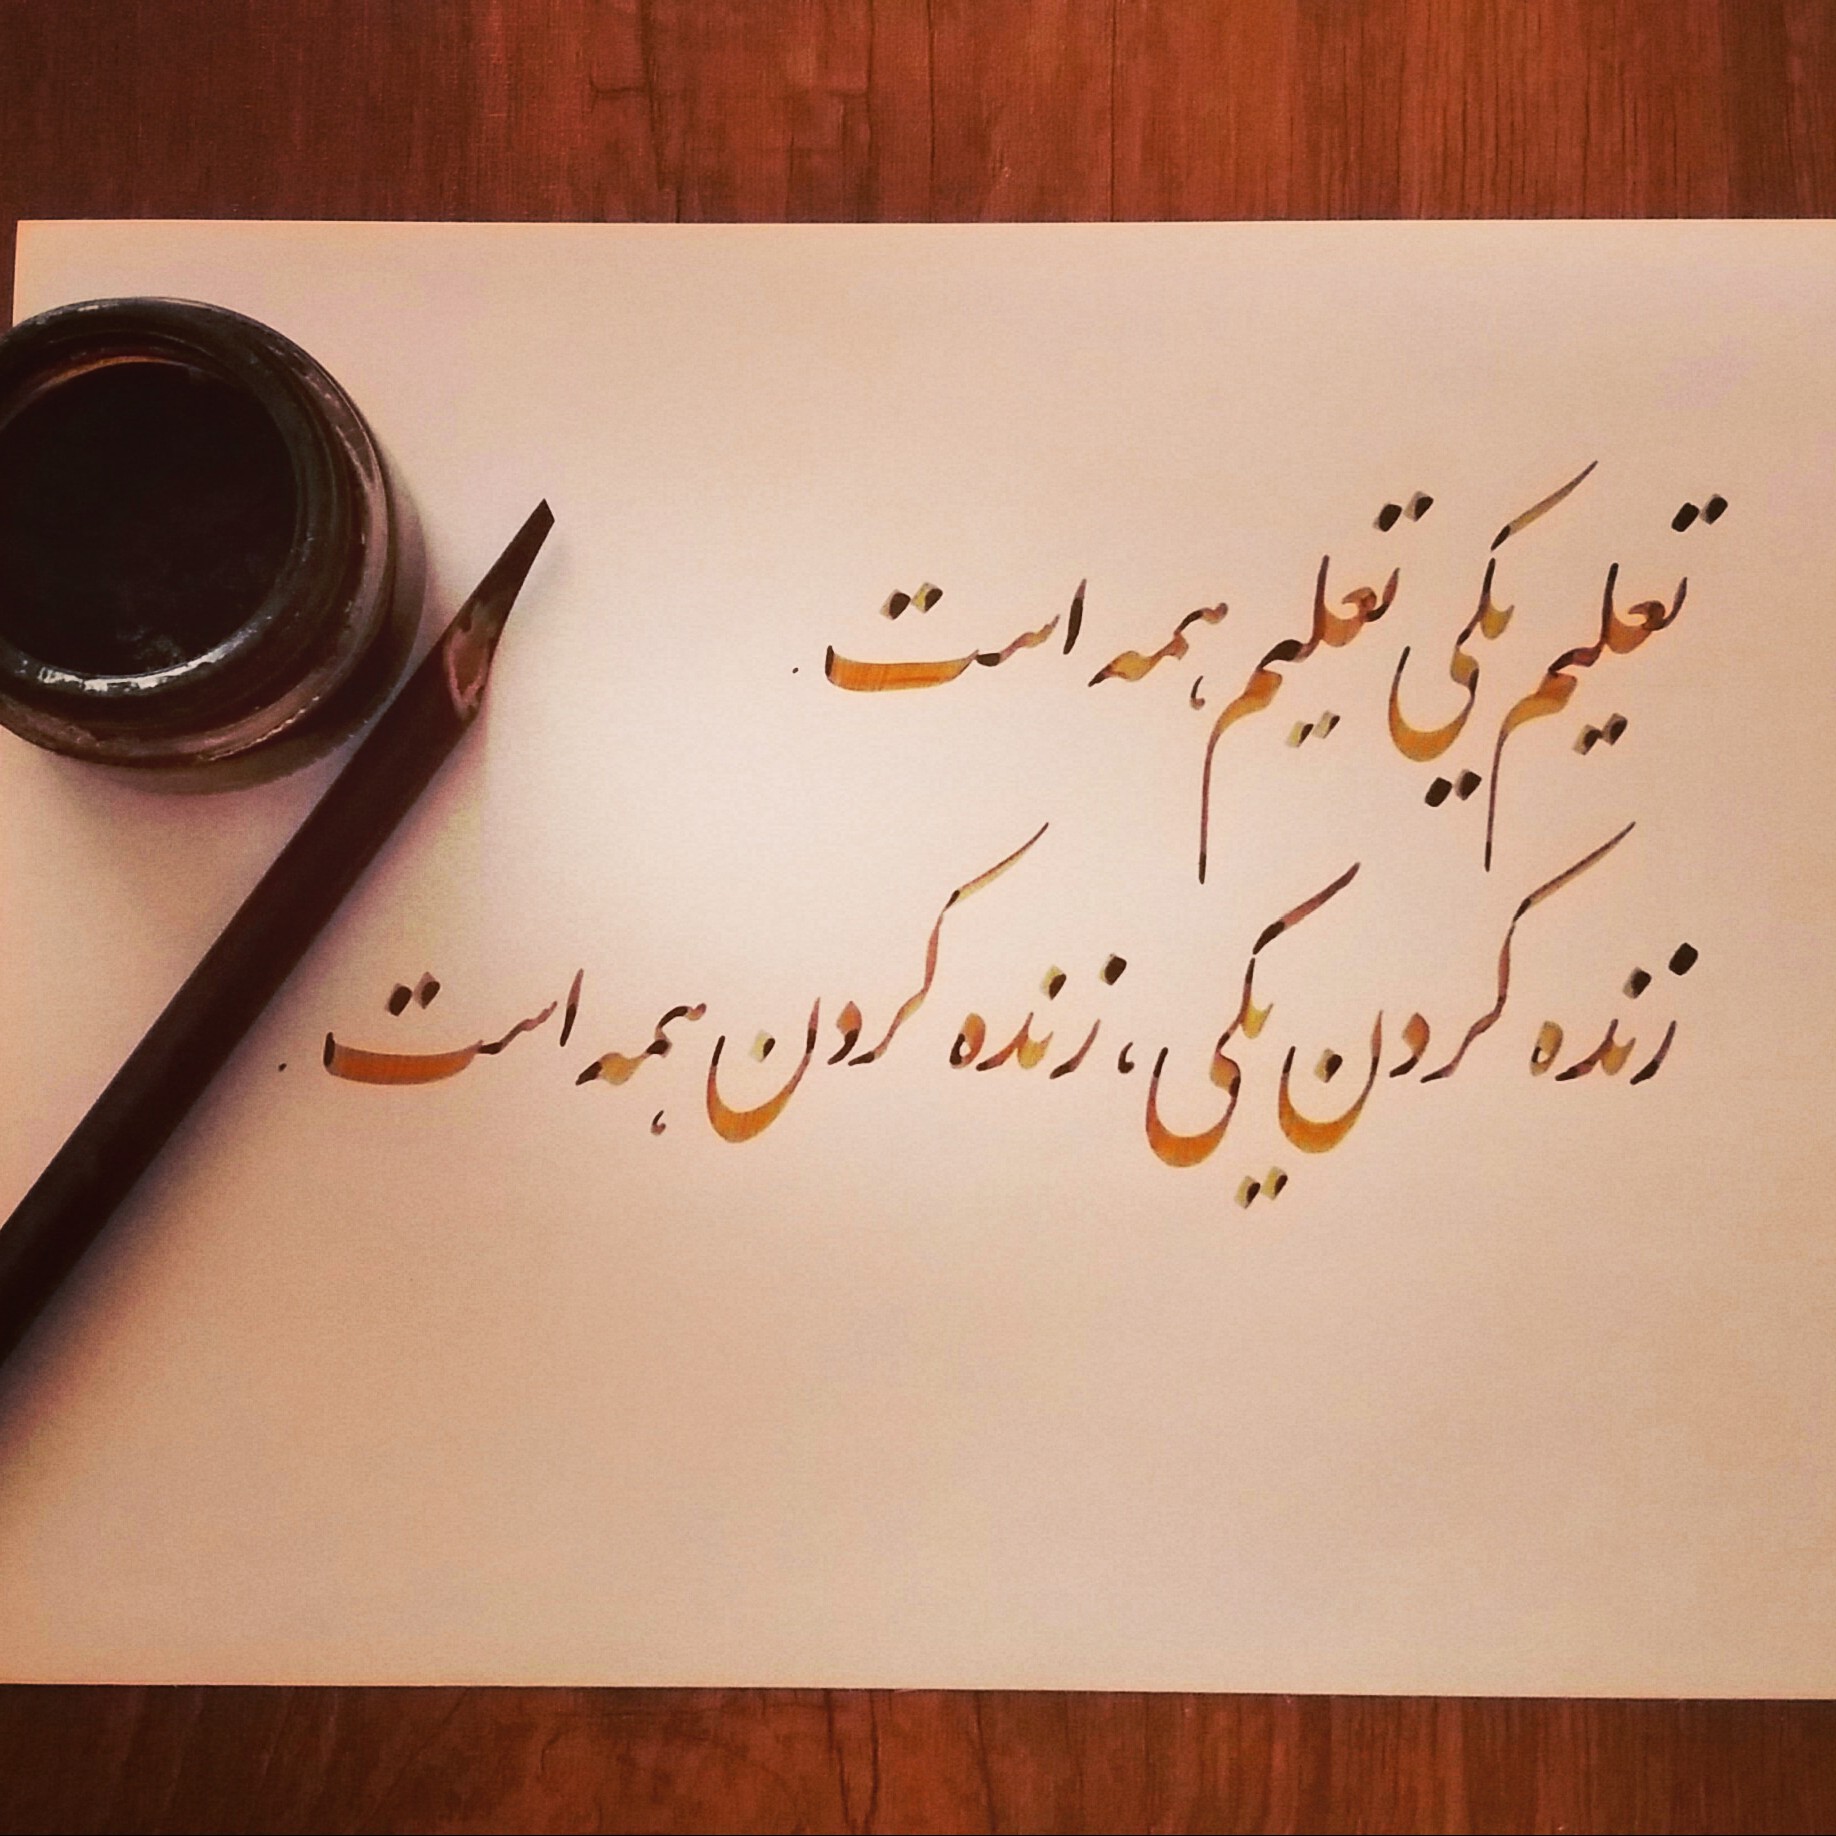 تعلیم یکی تعلیم همه است.
زنده کردن یکی، زنده کردن همه است.